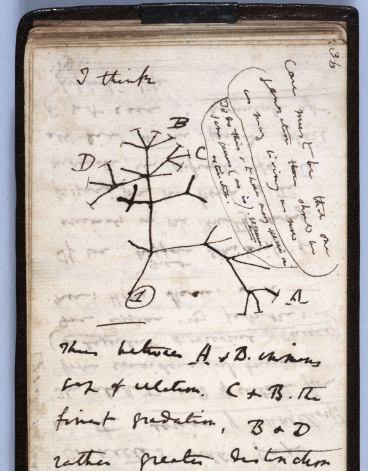 I think
36
Case must be that one
generation then should be
as many living as now
To do this & to have many species in
same genus (as is) requires
extinction.
B
D
C
A
1
Thus between A & B. immens
gap of relation. C & B. the
finest gradation, B & D
rather greater distinction